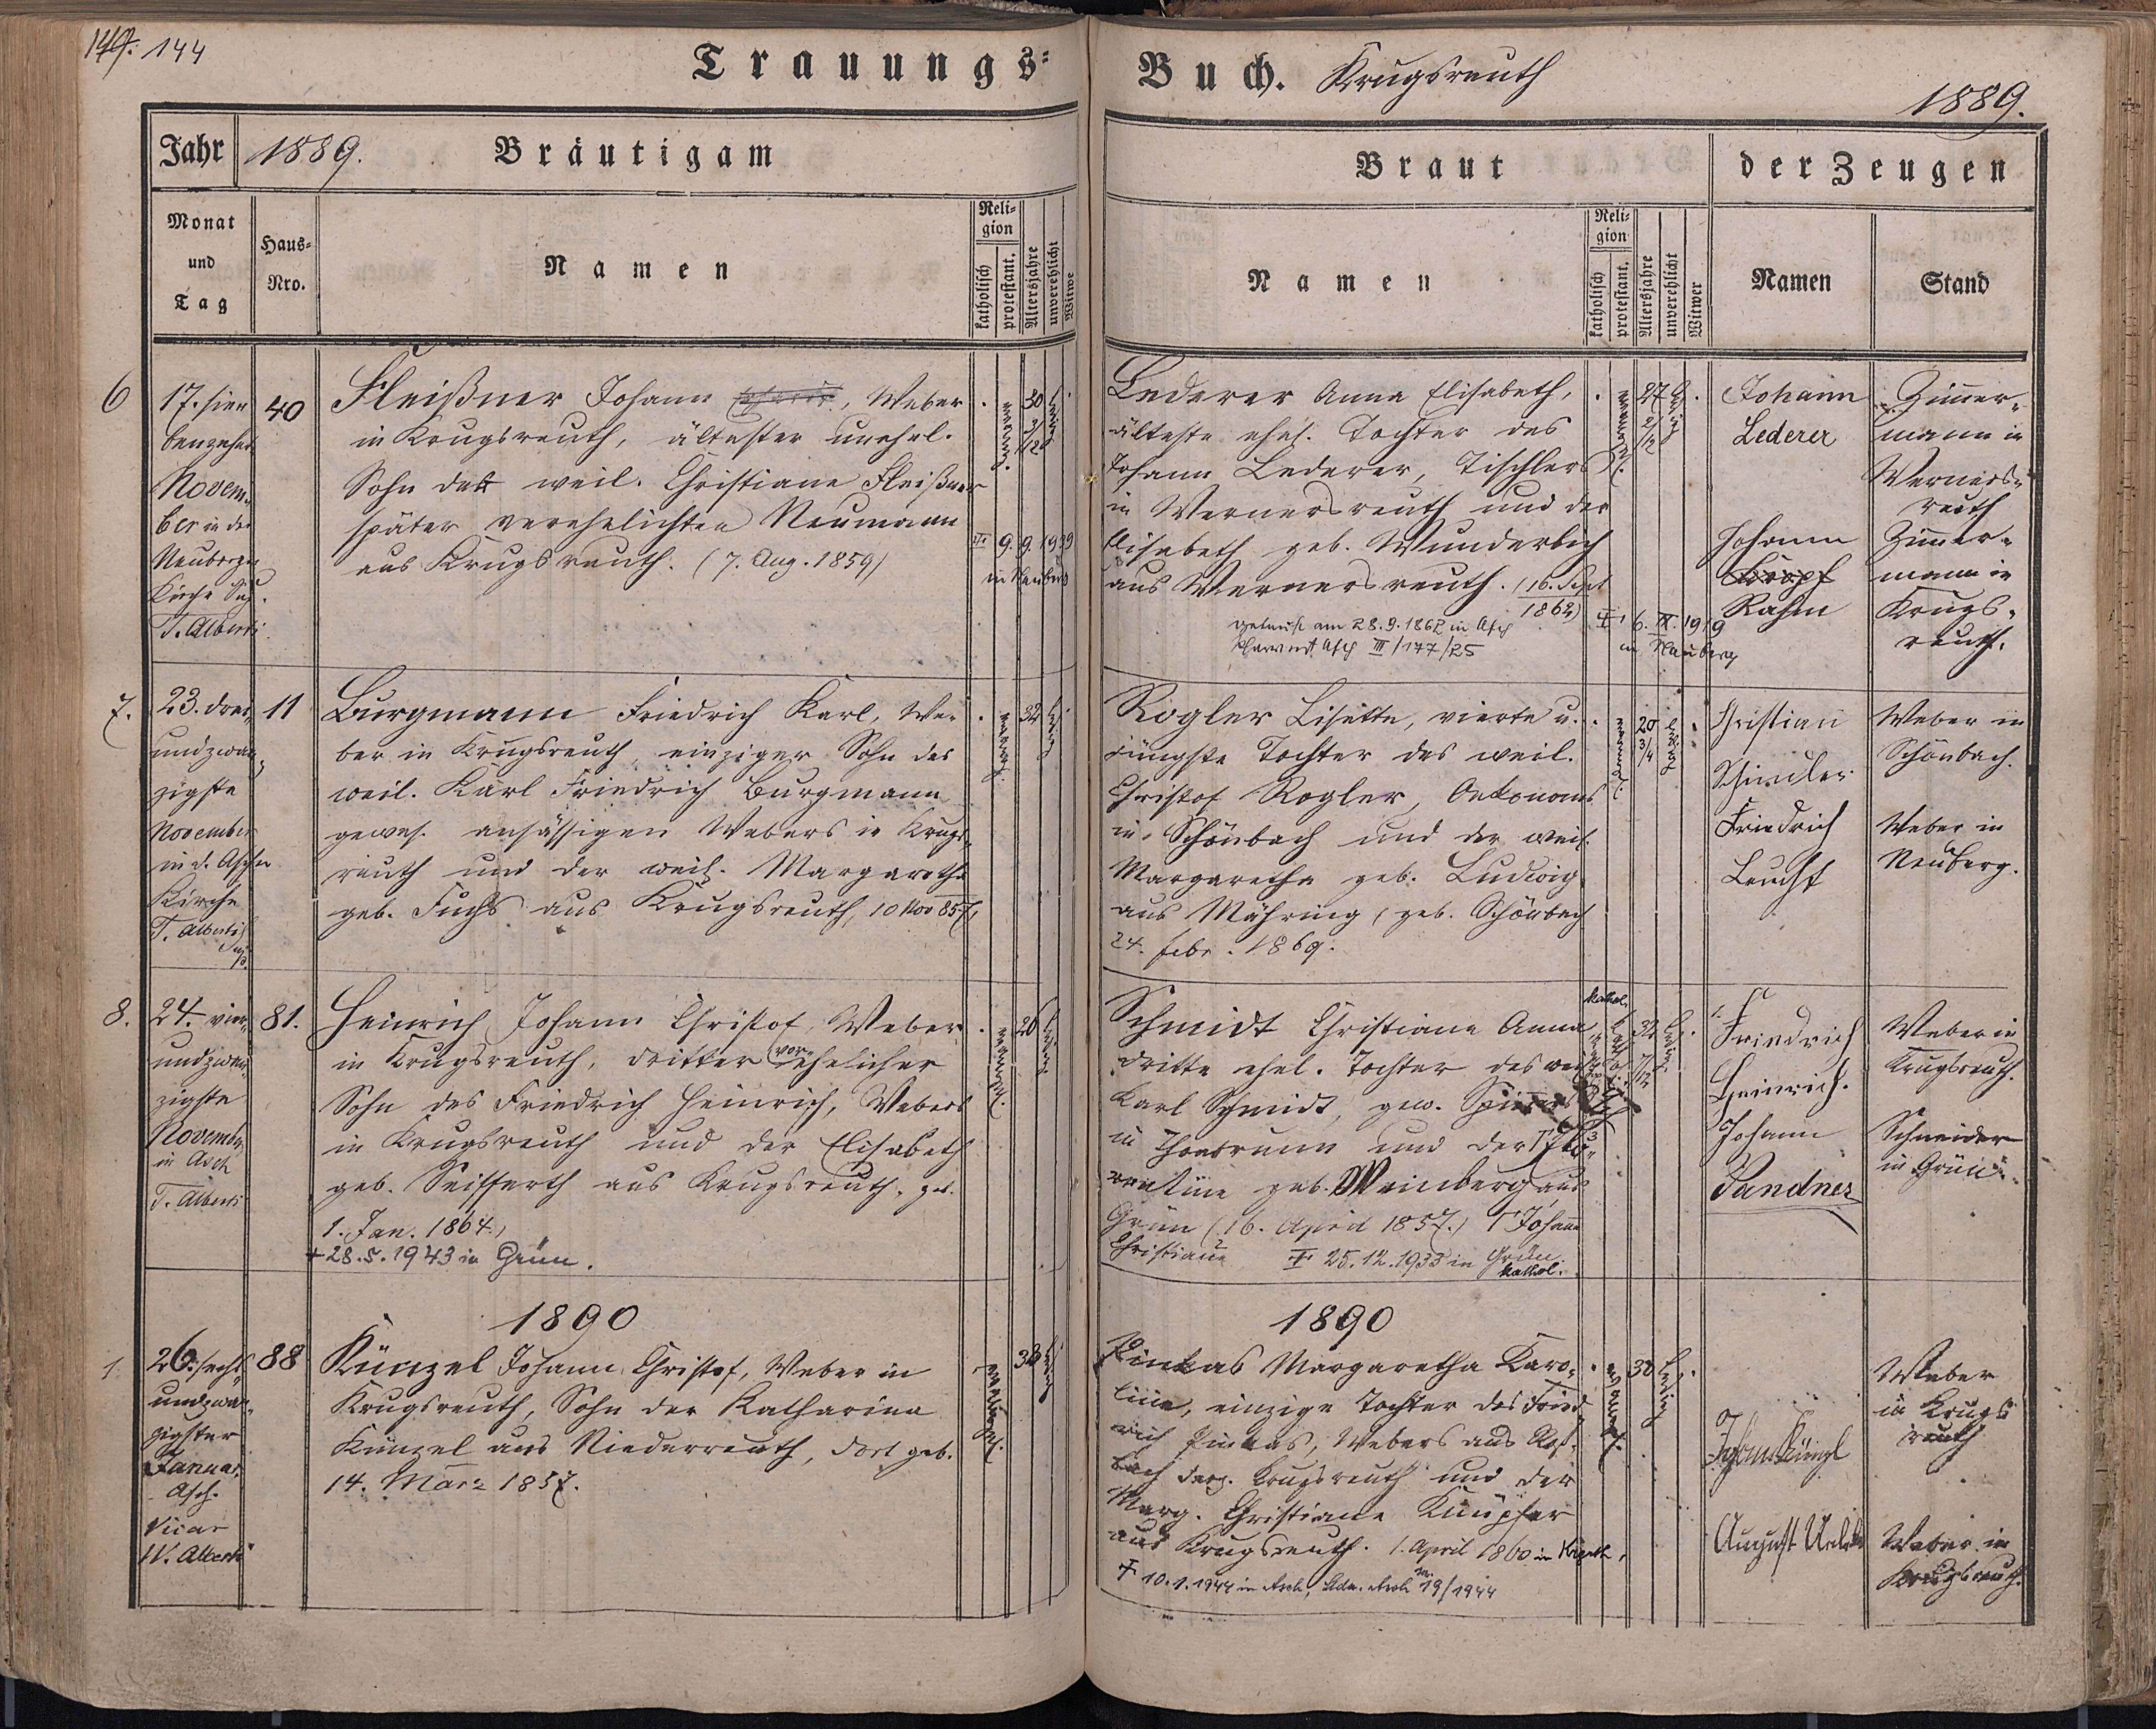 144
Trauungs-
Buch. Krugsreuth
1889.
Jahr 1889. Bräutigam
Braut
der Zeugen
Monat
und
Tag
Haus-
Nro.
Namen
Reli-
gion
katholisch
protestant.
Altersjahre
unverehlicht
Witwe
Namen
Reli-
gion
katholisch
protestant.
Altersjahre
unverehlicht
Witwer
Namen
Stand
6
17. sieu
benzehnt
Novem-
ber in der
Neuberger
Kirche Sup.
T. Alberti
40
Fleißner Johann, Weber
in Krugsreuth, ältester unehel.
Sohn der weil. Christiane Fleißner
später verehelichten Neumann
aus Krugsreuth. (7. Aug. 1859)
30
9. 9. 1939
in Neuberg
Lederer Anna Elisabeth,
älteste ehel. Tochter des
Johann Lederer, Tischlers
in Wernersreuth und der
Elisabeth geb. Wunderlich
aus Wernersreuth. (16. Sept
1862)
getauft am 28.9.1862 in Asch
Pfarramt Asch III/177/25
27 2/12
6. IX. 1919
in Neuberg
Johann
Lederer
Zimmer-
mann in
Werners-
reuth
Johann
Rahm
Zimmer-
mann in
Krugs-
reuth.
7.
23. drei
undzwan
zigste
November
in d. Ascher
Kirche
T. Alberti
Sup.
11
Burgmann Friedrich Karl, We-
ber in Krugsreuth, einziger Sohn des
weil. Karl Friedrich Burgmann
gewes. ansässigen Webers in Krugs-
reuth und der weil. Margaretha
geb. Fuchs aus Krugsreuth, 10 Nov 857,
32
Rogler Lisette, vierte u.
jüngste Tochter des weil.
Christof Rogler, Oekonoms
in Schönbach und der weil.
Margaretha geb. Ludwig
aus Mähring (geb. Schönbach
24. Febr. 1869.
20 3/4
Christian
Schindler
Weber in
Schönbach.
Friedrich
Leucht
Weber in
Neuberg.
8.
24. vier
undzwan
zigste
November
in Asch
T. Alberti
81.
Heinrich Johann Christof, Weber
in Krugsreuth, dritter vor-ehelicher
Sohn des Friedrich Heinrich, Webers
in Krugsreuth und der Elisabeth
geb. Seifferth aus Krugsreuth, geb.
1. Jan. 1864.)
+ 28.5.1943 in Grün.
Schmidt Christiane Anna
dritte ehel. Tochter des weil
Karl Schmidt, gew. Spinners
in Thonbrunn und der Flo-
rentine geb. Weinberg aus
Grün (16. April 1857.) Johanne
Christiane 25.12.1933 in Grün
kathol.
32 7/12
Friedrich
Heinrich.
Weber in
Krugsreuth.
Johann
Sandner
Schneider
in Grün.
1890
1890
1.
26. sechs
undzwan-
zigster
Januar.
Asch.
Vicar
W. Alberti
88
Künzel Johann Christof, Weber in
Krugsreuth, Sohn der Katharina
Künzel aus Niederreuth, dort geb.
14. März 1857.
Pinkas Margaretha Karo-
line, einzige Tochter des Fried-
rich Pinkas, Webers aus Roß-
bach derz. Krugsreuth und der
Marg. Christiane Knüpfer
aus Krugsreuth. 1. April 1860 in
+ 10.1.1944 in Asch, Asch 19/1944
Johann Künzl
Weber
in Krugs
reuth
August
Weber in
Krugsreuth.